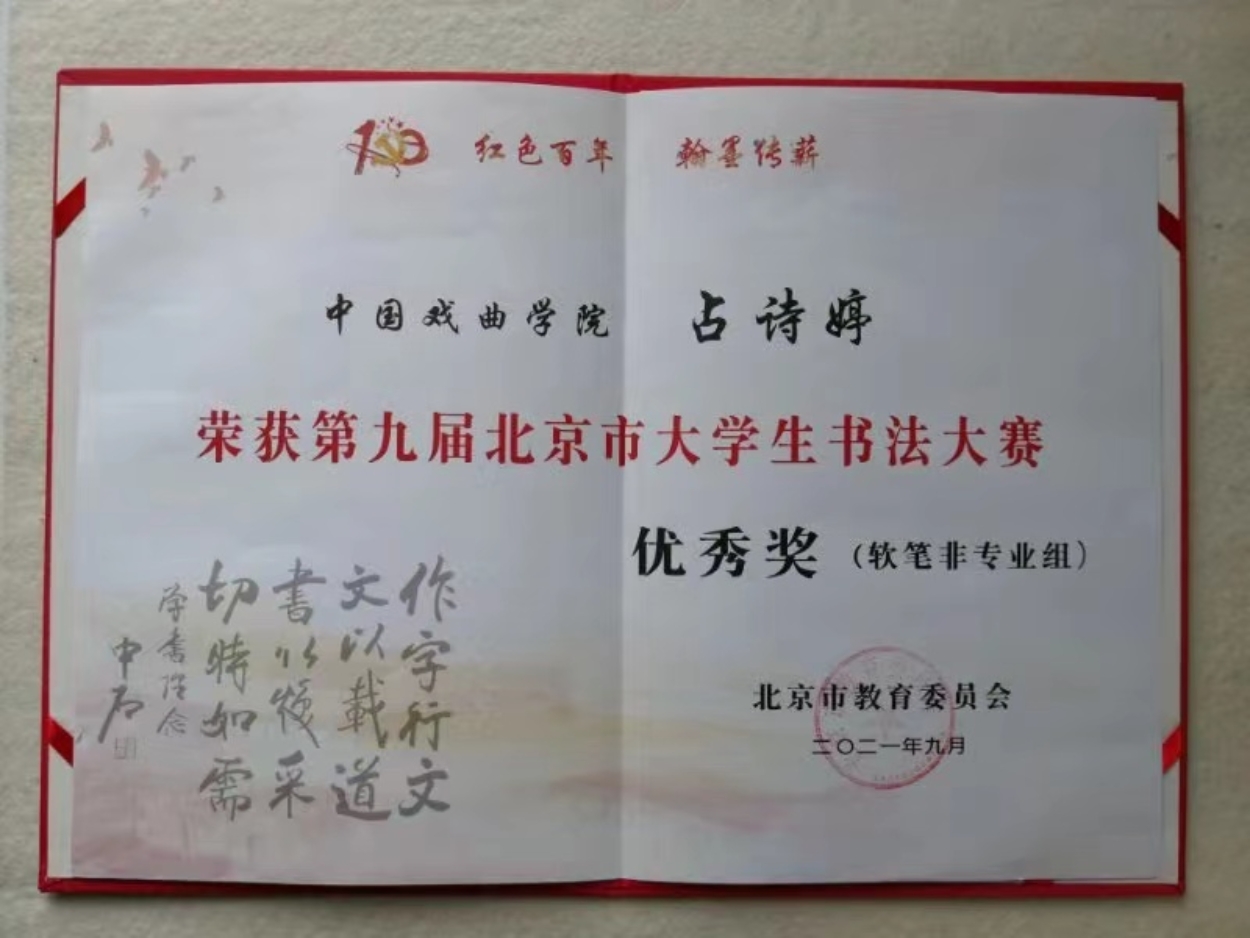 100 红色百年 翰墨传薪
中国戏曲学院 占诗婷
荣获第九届北京市大学生书法大赛
优秀奖（软笔非专业组）
作字行文
文以载道
書以焕采
切時如需
学書理念
申石
北京市教育委员会
二〇二一年九月